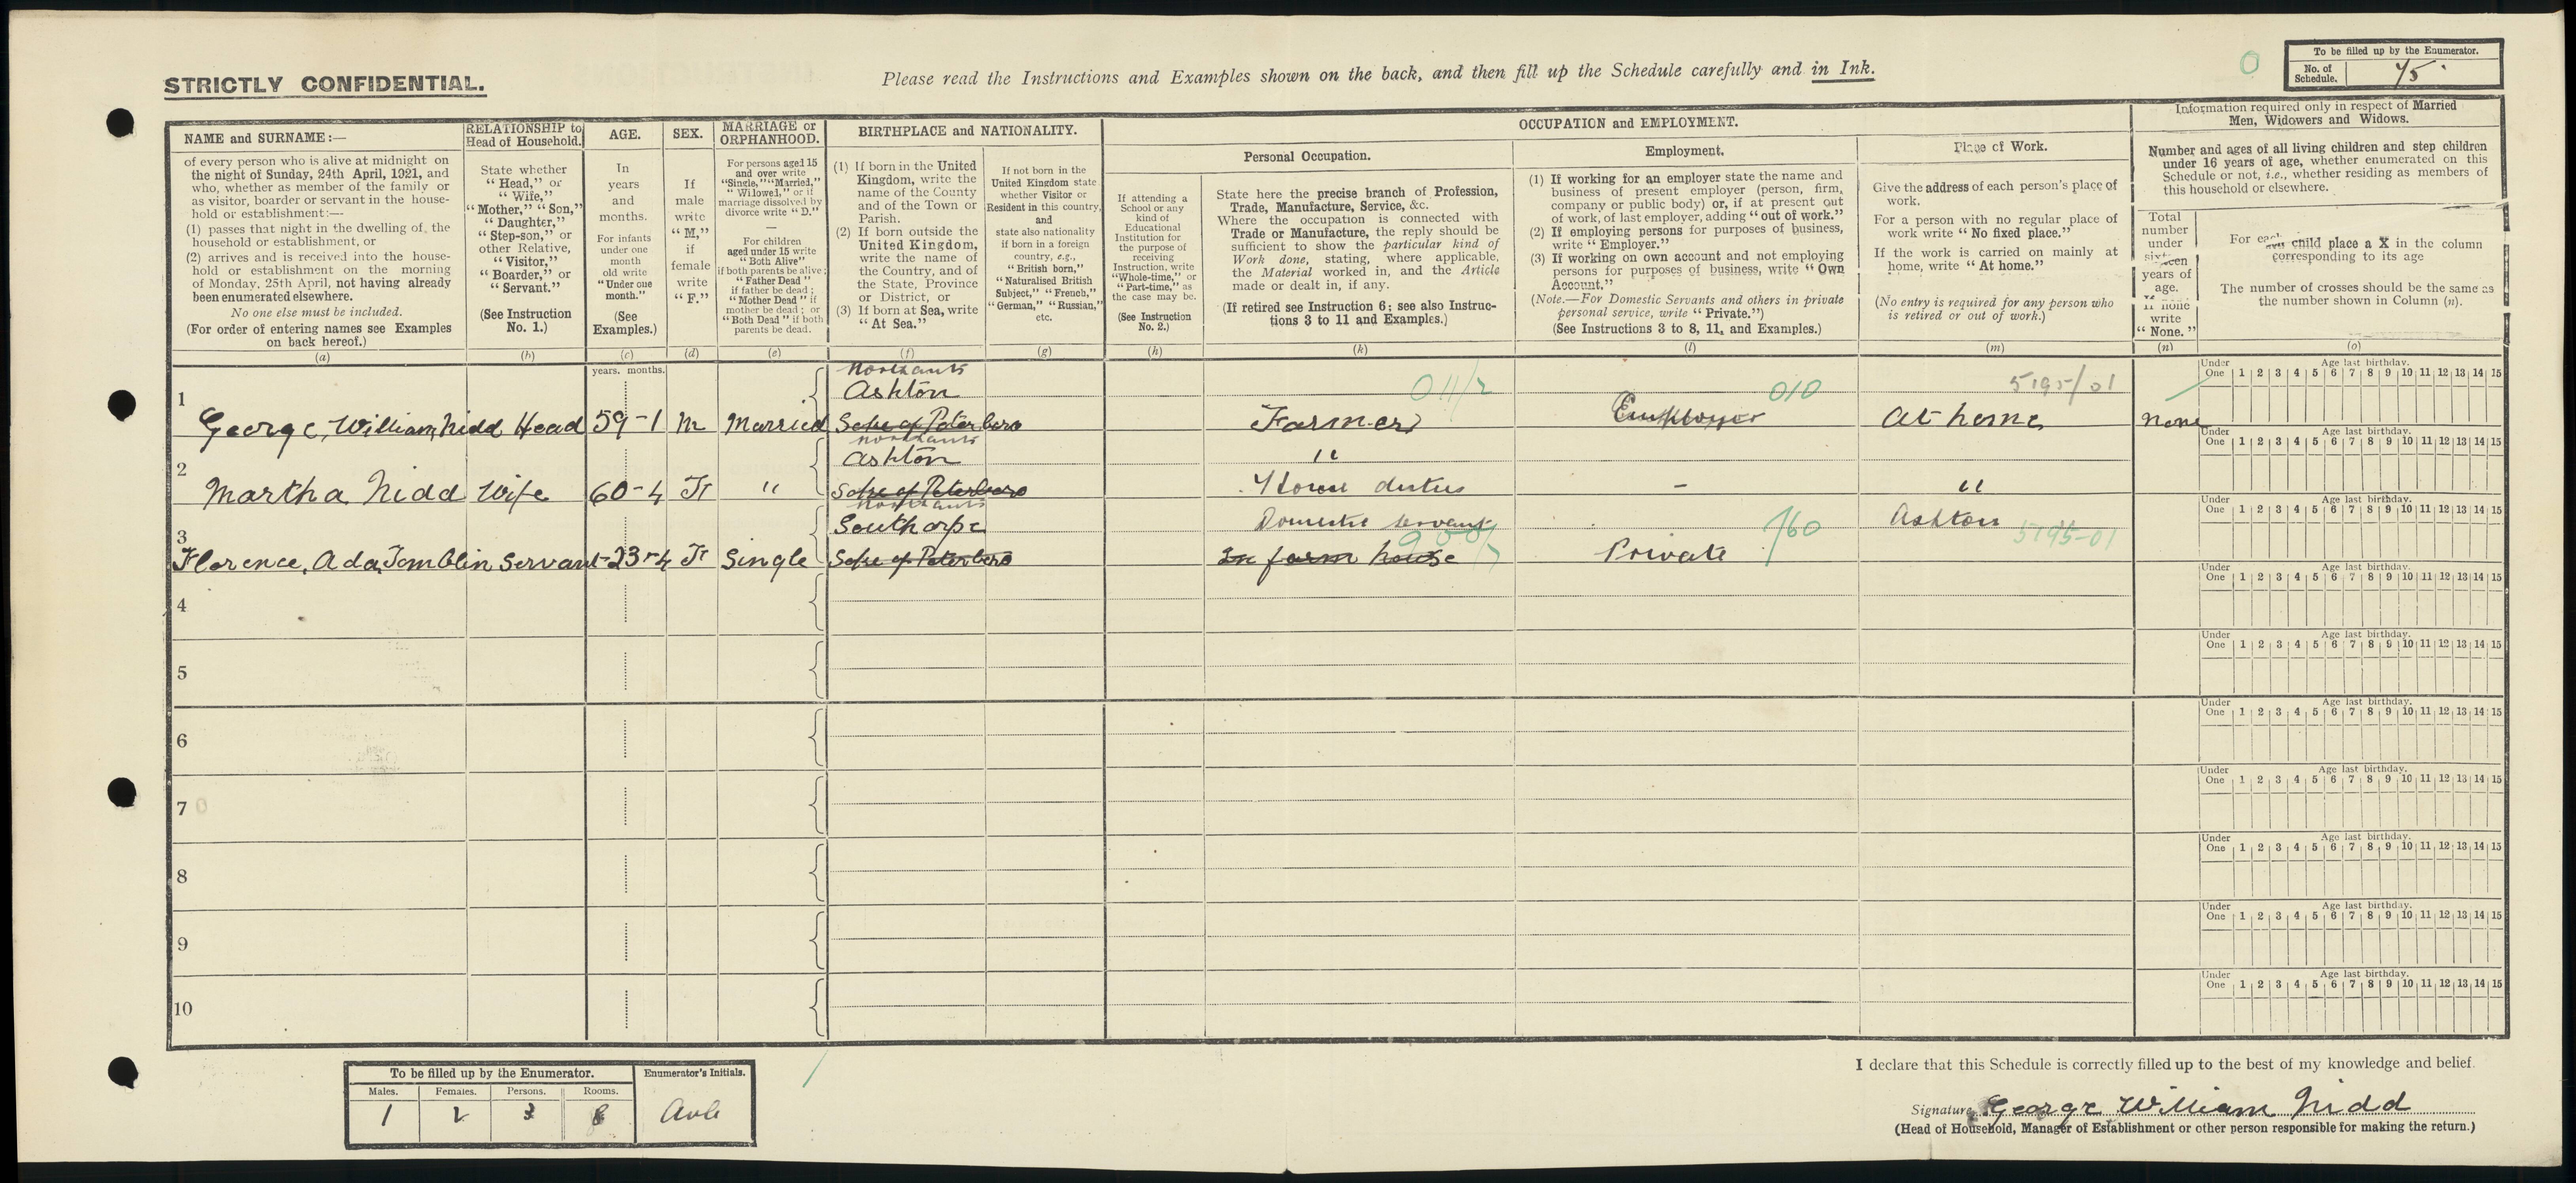 STRICTLY CONFIDENTIAL.
Please read the Instructions and Examples shown on the back, and then fill up the Schedule carefully and in Ink.
0
To be filled up by the Enumerator.
No. of Schedule. 75
NAME and SURNAME:—
of every person who is alive at midnight on
the night of Sunday, 24th April, 1921, and
who, whether as member of the family or
as visitor, boarder or servant in the house-
hold or establishment:—
(1) passes that night in the dwelling of the
household or establishment, or
(2) arrives and is received into the house-
hold or establishment on the morning
of Monday, 25th April, not having already
been enumerated elsewhere.
No one else must be included.
(For order of entering names see Examples
on back hereof.)
(a)
RELATIONSHIP to
Head of Household.
State whether
"Head," or
"Wife,"
"Mother," "Son,"
"Daughter,"
"Step-son," or
other Relative,
"Visitor,"
"Boarder," or
"Servant."
(See Instruction
No. 1.)
(b)
AGE.
In
years
and
months.
For infants
under one
month
old write
"Under one
month."
(See
Examples.)
(c)
SEX.
If
male
write
"M,"
if
female
write
"F."
(d)
MARRIAGE or
ORPHANHOOD.
For persons aged 15
and over write
"Single," "Married,"
"Widowed," or if
marriage dissolved by
divorce write "D."
—
For children
aged under 15 write
"Both Alive"
if both parents be alive;
"Father Dead"
if father be dead;
"Mother Dead" if
mother be dead; or
"Both Dead" if both
parents be dead.
(e)
BIRTHPLACE and NATIONALITY.
(1) If born in the United
Kingdom, write the
name of the County
and of the Town or
Parish.
(2) If born outside the
United Kingdom,
write the name of
the Country, and of
the State, Province
or District, or
(3) If born at Sea, write
"At Sea."
(f)
If not born in the
United Kingdom state
whether Visitor or
Resident in this country,
and
state also nationality
if born in a foreign
country, e.g.,
"British born,"
"Naturalised British
Subject," "French,"
"German," "Russian,"
etc.
(g)
OCCUPATION and EMPLOYMENT.
If attending a
School or any
kind of
Educational
Institution for
the purpose of
receiving
Instruction, write
"Whole-time," or
"Part-time," as
the case may be.
(See Instruction
No. 2.)
(h)
Personal Occupation.
State here the precise branch of Profession,
Trade, Manufacture, Service, &c.
Where the occupation is connected with
Trade or Manufacture, the reply should be
sufficient to show the particular kind of
Work done, stating, where applicable,
the Material worked in, and the Article
made or dealt in, if any.
(If retired see Instruction 6; see also Instruc-
tions 3 to 11 and Examples.)
(k)
Employment.
(1) If working for an employer state the name and
business of present employer (person, firm,
company or public body) or, if at present out
of work, of last employer, adding "out of work."
(2) If employing persons for purposes of business,
write "Employer."
(3) If working on own account and not employing
persons for purposes of business, write "Own
Account."
(Note.—For Domestic Servants and others in private
personal service, write "Private.")
(See Instructions 3 to 8, 11, and Examples.)
(l)
Place of Work.
Give the address of each person's place of
work.
For a person with no regular place of
work write "No fixed place."
If the work is carried on mainly at
home, write "At home."
(No entry is required for any person who
is retired or out of work.)
(m)
Information required only in respect of Married
Men, Widowers and Widows.
Number and ages of all living children and step children
under 16 years of age, whether enumerated on this
Schedule or not, i.e., whether residing as members of
this household or elsewhere.
Total
number
under
sixteen
years of
age.
If none
write
"None."
(n)
For each such child place a X in the column
corresponding to its age
The number of crosses should be the same as
the number shown in Column (n).
(o)
years. months.
Under One Age last birthday. 1 2 3 4 5 6 7 8 9 10 11 12 13 14 15
1
Northants
Ashton
011/2 010 5195/01
George, William, Nidd Head 59-1 M Married Soke of Peterboro Farmer Employer At home None
Under One Age last birthday. 1 2 3 4 5 6 7 8 9 10 11 12 13 14 15
2
Northants
Ashton "
Martha Nidd Wife 60-4 F " Soke of Peterboro House duties - "
Under One Age last birthday. 1 2 3 4 5 6 7 8 9 10 11 12 13 14 15
3
Northants
Southorpe Domestic servant Ashton
900/7 760 5195-01
Florence, Ada, Tomblin Servant 23-4 F Single Soke of Peterboro In farm house Private
Under One Age last birthday. 1 2 3 4 5 6 7 8 9 10 11 12 13 14 15
4
Under One Age last birthday. 1 2 3 4 5 6 7 8 9 10 11 12 13 14 15
5
Under One Age last birthday. 1 2 3 4 5 6 7 8 9 10 11 12 13 14 15
6
Under One Age last birthday. 1 2 3 4 5 6 7 8 9 10 11 12 13 14 15
7
Under One Age last birthday. 1 2 3 4 5 6 7 8 9 10 11 12 13 14 15
8
Under One Age last birthday. 1 2 3 4 5 6 7 8 9 10 11 12 13 14 15
9
Under One Age last birthday. 1 2 3 4 5 6 7 8 9 10 11 12 13 14 15
10
To be filled up by the Enumerator.
Males. Females. Persons. Rooms.
1 2 3 8
Enumerator's Initials.
I declare that this Schedule is correctly filled up to the best of my knowledge and belief.
Signature George William Nidd
(Head of Household, Manager of Establishment or other person responsible for making the return.)